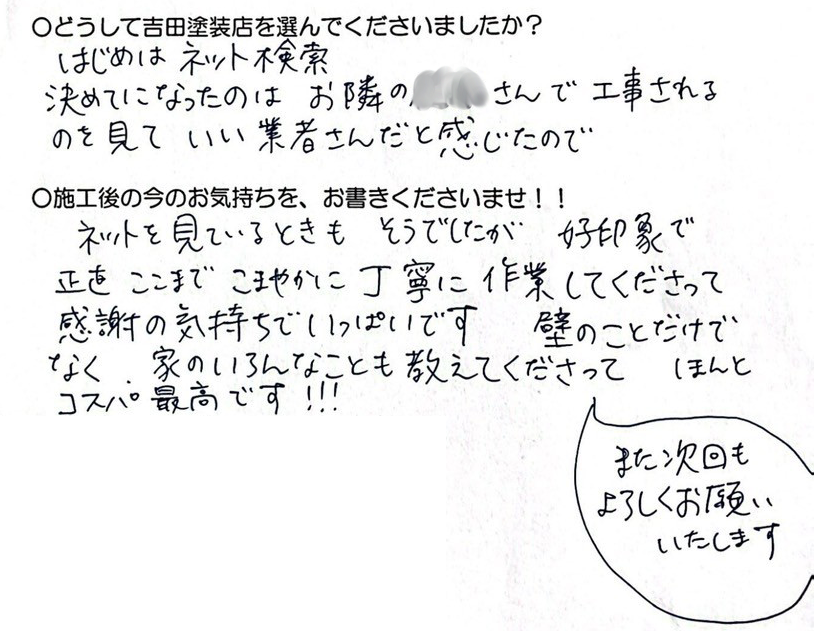 ○どうして吉田塗装店を選んでくださいましたか？
はじめは ネット検索
決めてになったのは お隣の さんで 工事される
のを見て いい業者さんだと感じたので
○施工後の今のお気持ちを、お書きくださいませ！！
ネットを見ているときも そうでしたが 好印象で
正直 ここまで こまやかに 丁寧に 作業してくださって
感謝の気持ちでいっぱいです 壁のことだけで
なく、家のいろんなことも教えてくださって ほんと
コスパ最高です!!!
また次回も
よろしくお願い
いたします